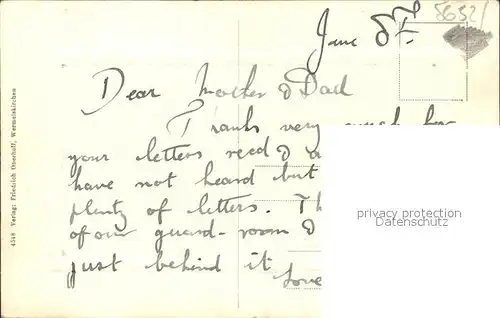 8652/
June 8th
Dear Mother & Dad
Thanks very much for
your letters recd &
have not heard but
plenty of letters. Th
of our guard-room &
just behind it
Love
privacy protection
Datenschutz
4548 Verlag: Friedrich Osenhoff, Wermelskirchen